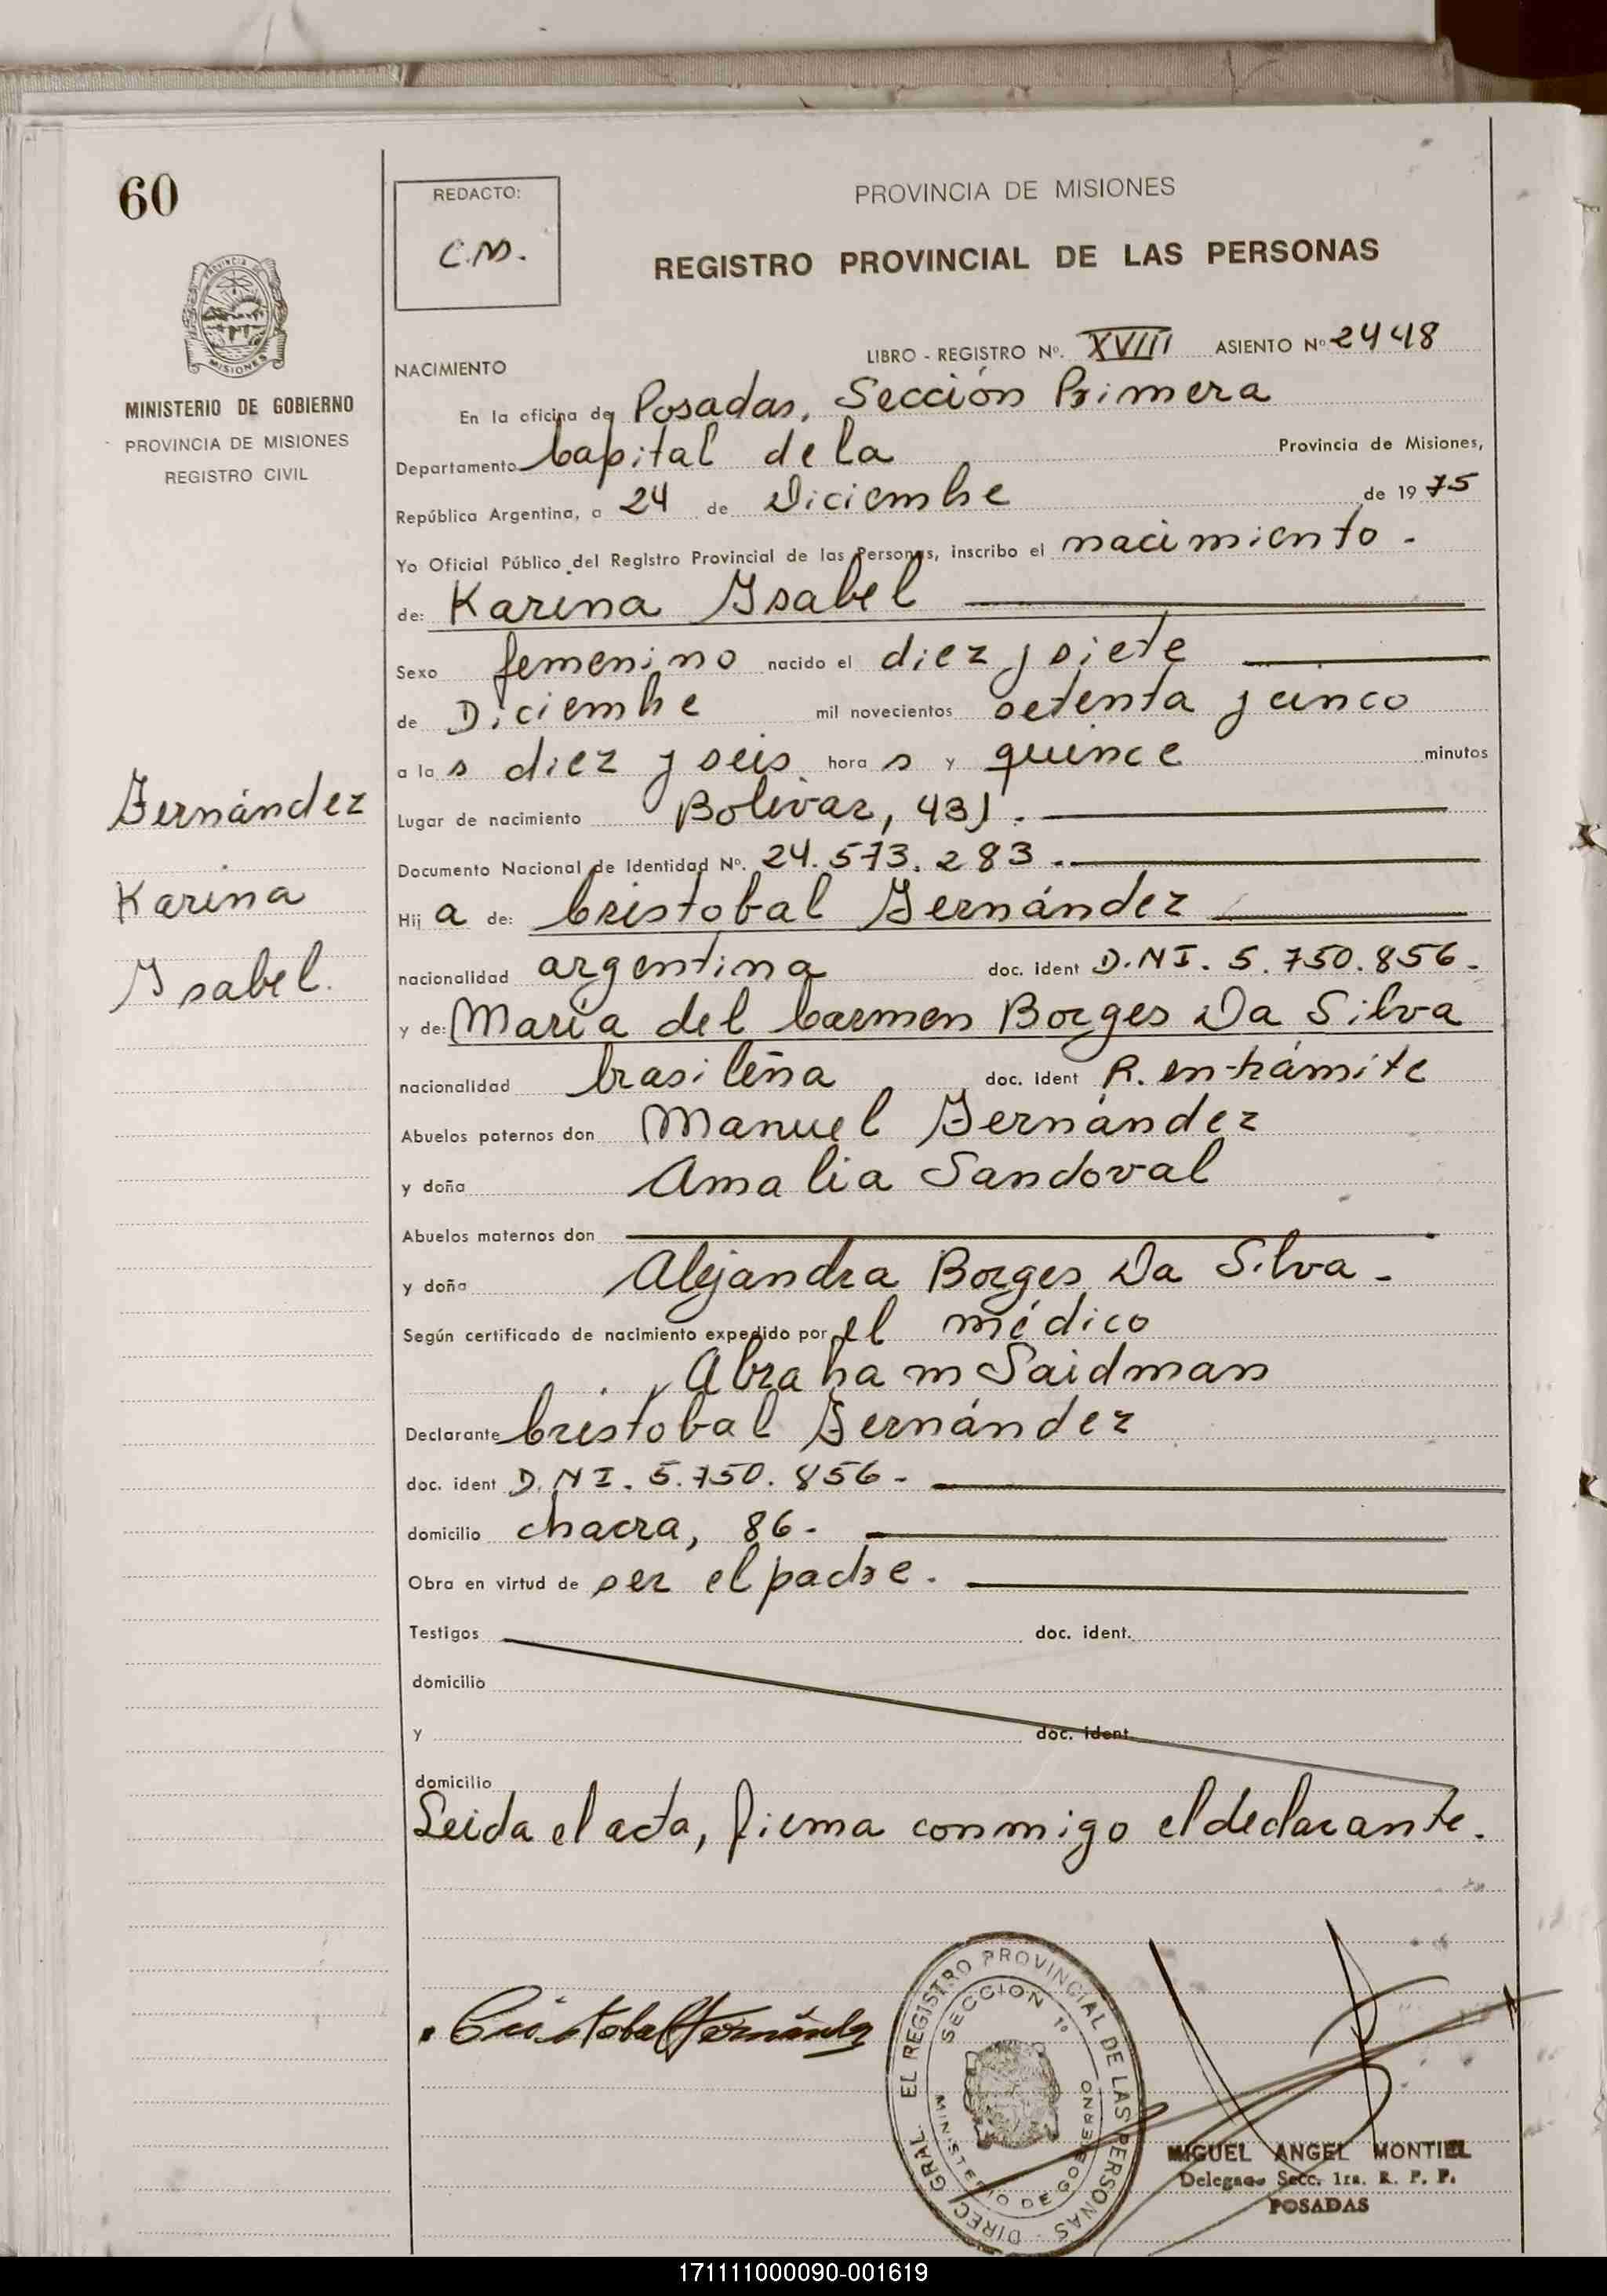 60
REDACTO:
C.M.
PROVINCIA DE MISIONES
REGISTRO PROVINCIAL DE LAS PERSONAS
PROVINCIA DE
MISIONES
MINISTERIO DE GOBIERNO
PROVINCIA DE MISIONES
REGISTRO CIVIL
LIBRO - REGISTRO Nº. XVIII ASIENTO Nº 2448
NACIMIENTO
En la oficina de Posadas, Sección Primera
Departamento Capital de la Provincia de Misiones,
República Argentina, a 24 de Diciembre de 1975
Yo Oficial Público del Registro Provincial de las Personas, inscribo el nacimiento.
de: Karina Ysabel
Sexo femenino nacido el diez y siete
de Diciembre mil novecientos setenta y cinco
a las diez y seis horas y quince minutos
Lugar de nacimiento Bolívar, 431.
Documento Nacional de Identidad Nº. 24.573.283.
Hija de: Cristobal Fernández
nacionalidad argentina doc. ident D.N.I. 5.750.856.
y de: María del Carmen Borges Da Silva
nacionalidad brasileña doc. ident R. en trámite
Abuelos paternos don Manuel Fernández
y doña Amalia Sandoval
Abuelos maternos don
y doña Alejandra Borges Da Silva.
Según certificado de nacimiento expedido por el médico
Abraham Saidman
Declarante Cristobal Fernández
doc. ident D.N.I. 5.750.856.
domicilio chacra, 86.
Obra en virtud de ser el padre.
Testigos doc. ident.
domicilio
y doc. ident.
domicilio
Leida el acta, firma conmigo el declarante.
Fernández
Karina
Ysabel.
Cristobal Fernández
DIREC. GRAL. EL REGISTRO PROVINCIAL DE LAS PERSONAS
SECCION 1º
MINISTERIO DE GOBIERNO
MIGUEL ANGEL MONTIEL
Delegado Secc. 1ra. R. P. P.
POSADAS
171111000090-001619